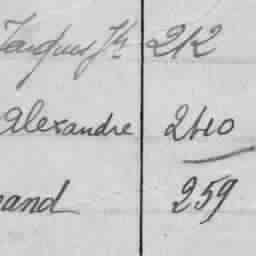 Jacques Jh 212
Alexandre 240
nand 259